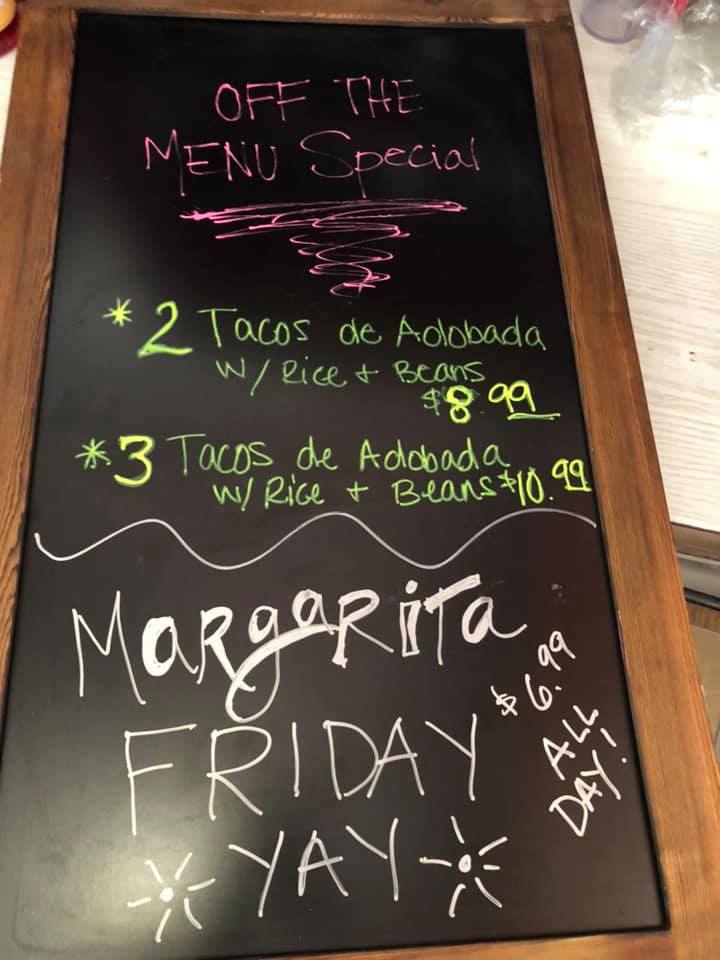 OFF THE
MENU Special
*2 Tacos de Adobada
W/ Rice + Beans
$8.99
*3 Tacos de Adobada
W/ Rice + Beans $10.99
MARgaRiTa
FRIDAY
$6.99
ALL
DAY!
YAY